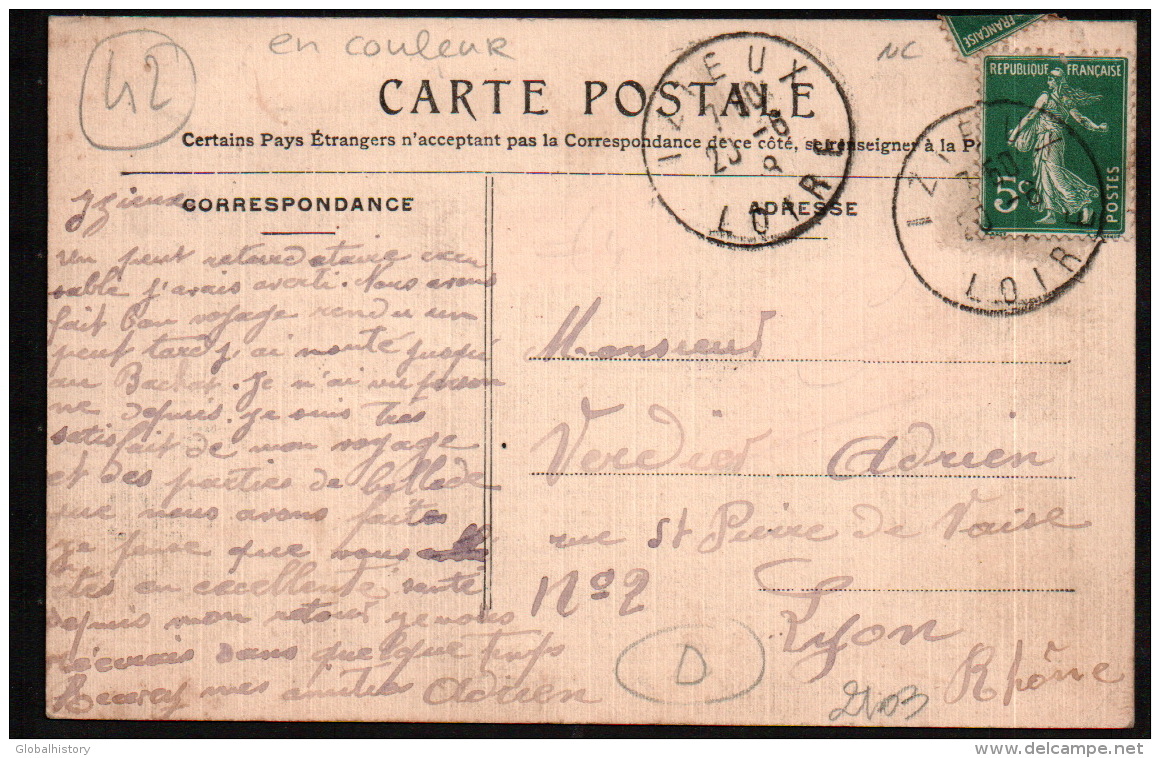 42
en couleur
NC
CARTE POSTALE
Certains Pays Étrangers n'acceptent pas la Correspondance de ce côté, se renseigner à la P
IZIEUX
LOIRE
RÉPUBLIQUE FRANÇAISE
5c
POSTES
FRANÇAISE
IZIEUX
LOIRE
CORRESPONDANCE
ADRESSE
Izieux
un peut retardataire excu
sable j'avais averti. Nous avons
fait bon voyage rendu un
peut tard j'ai monté jusqu
au Bachat. Je n'ai vu person
ne depuis. je suis très
satisfait de mon voyage
et des parties de ballade
que nous avons faites
je pense que vous
êtes en excellente santé
depuis mon retour je vous
récrirais dans quelque temps
mes amitiés Adrien
Monsieur
Verdier Adrien
rue St Pierre de Vaise
No 2
Lyon
Rhône
D
2103
Globalhistory
delcampe.net